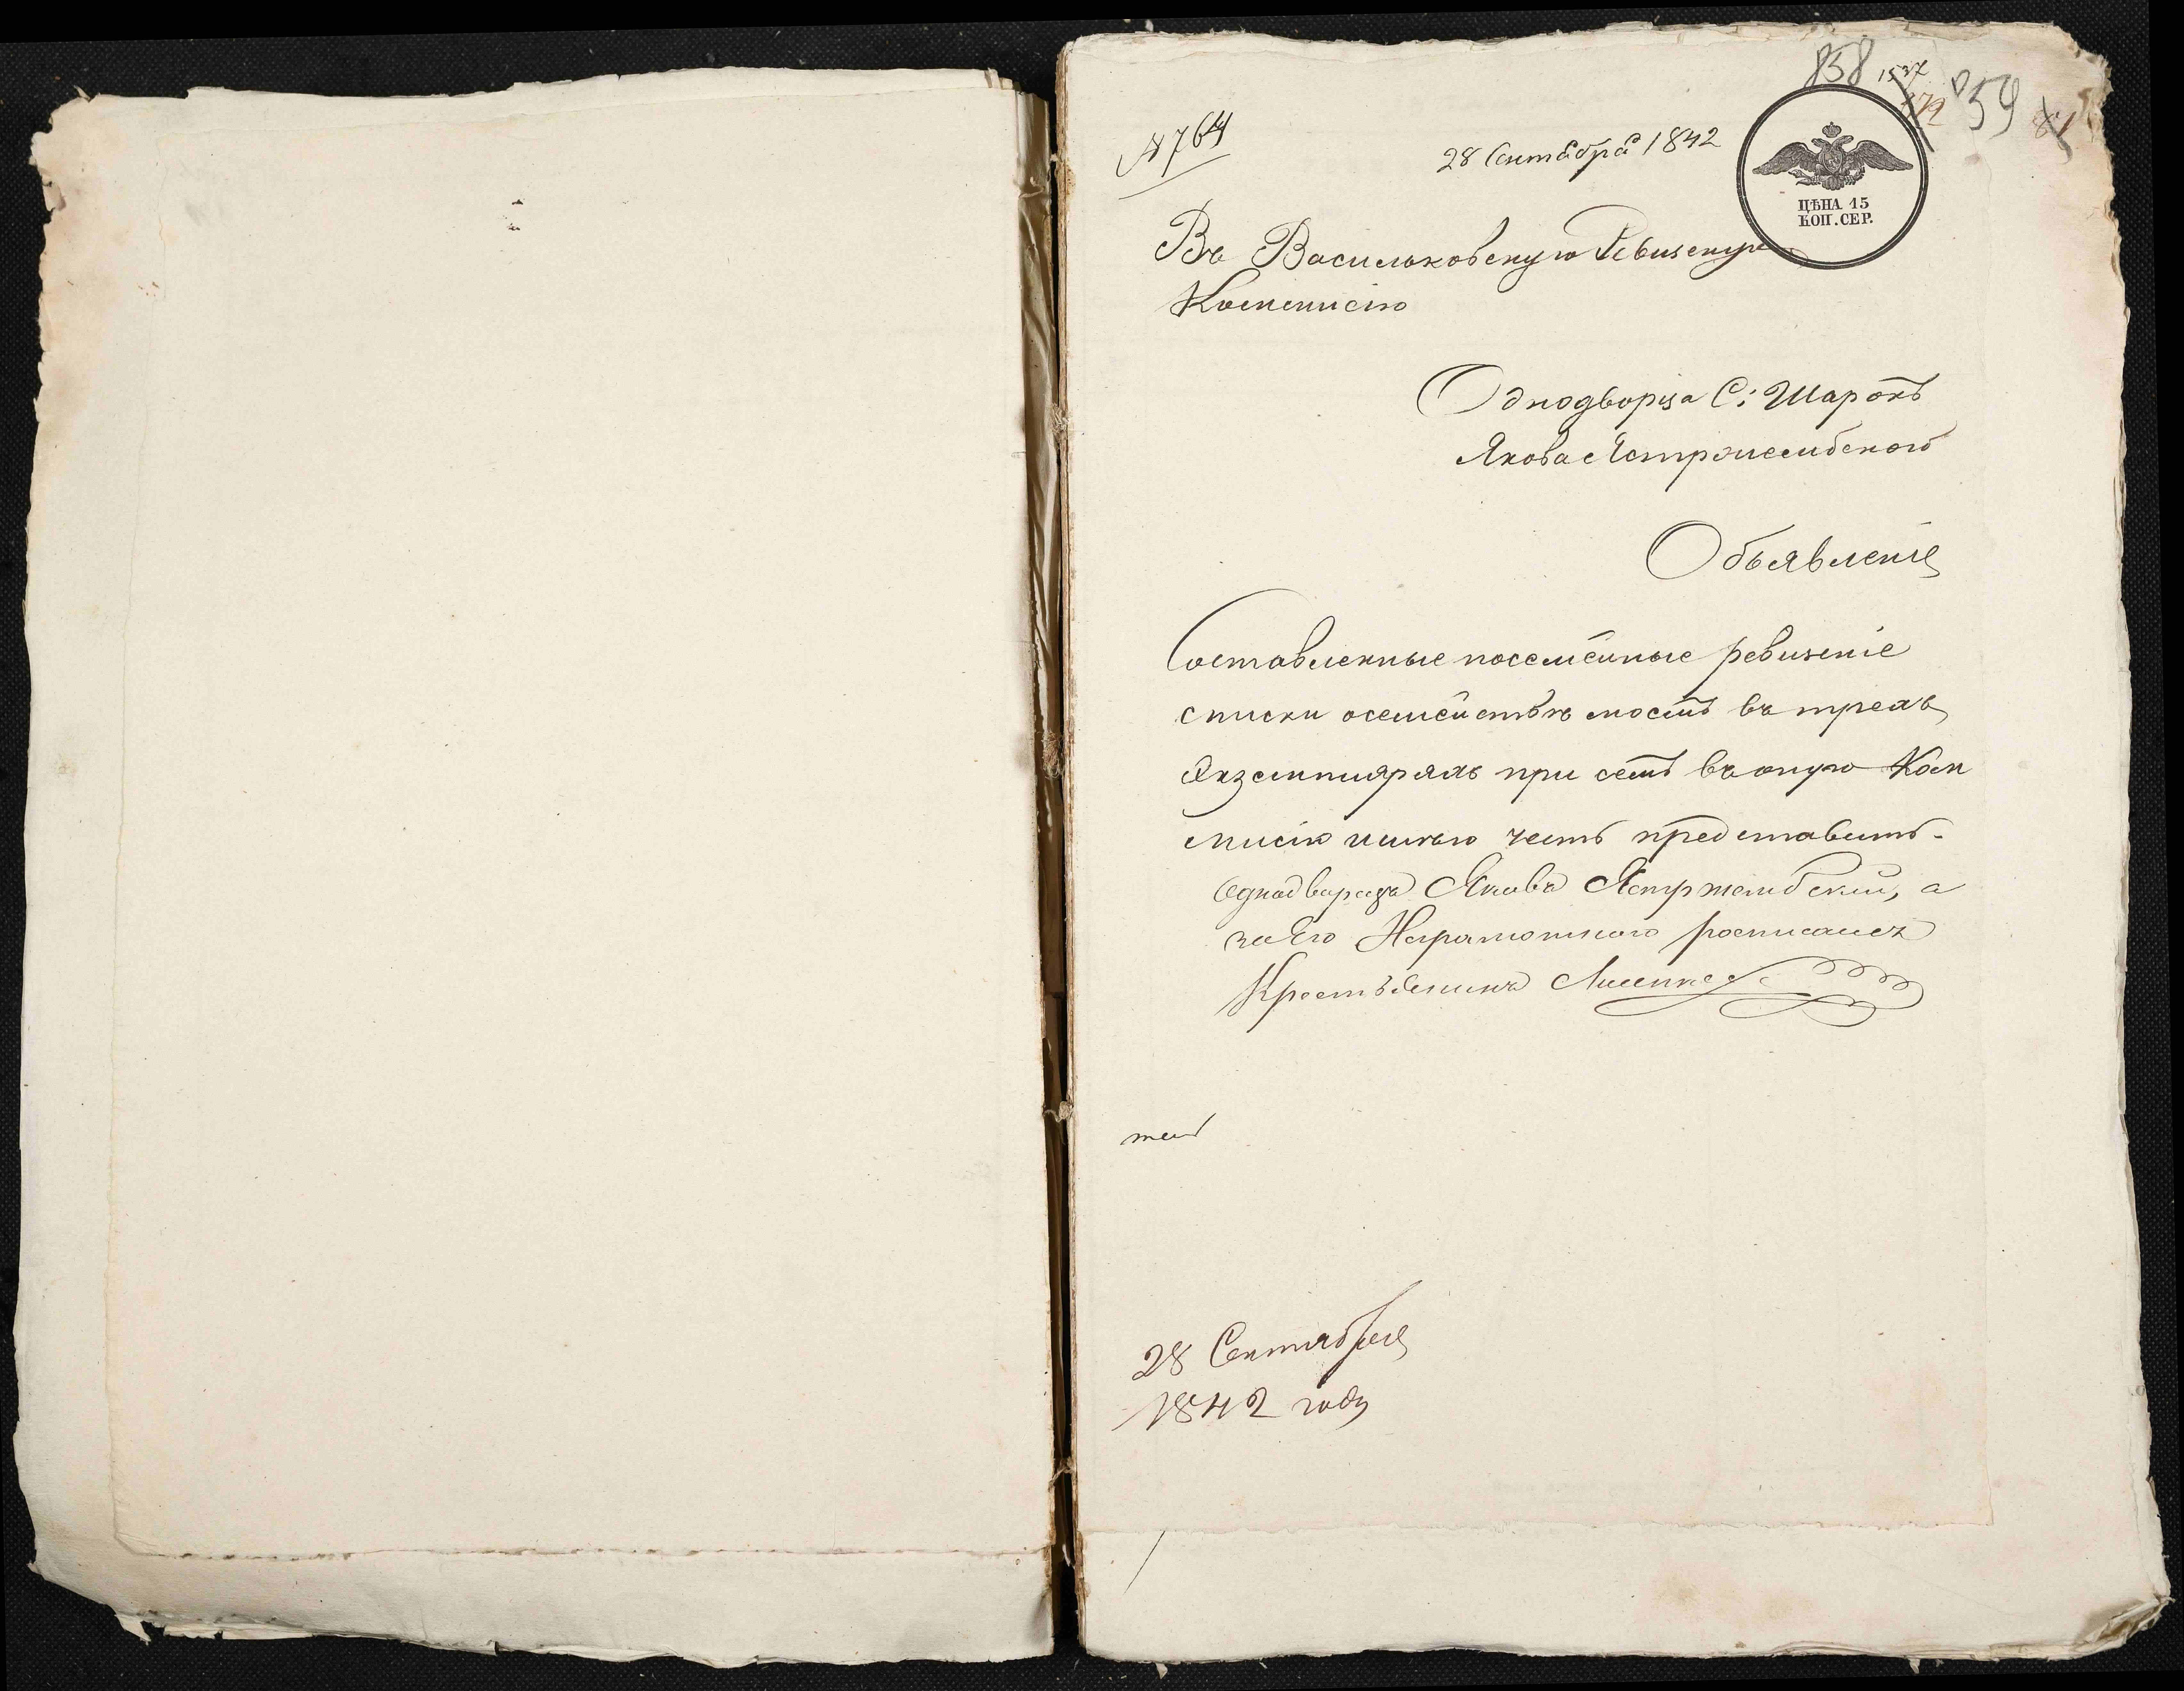 858
59
№ 764
28 Сентября 1842
ЦѢНА 15
КОП. СЕР.
Въ Васильковскую Ревизскую
Коммисію
Однодворца С: Шарокъ
Якова Ястржембского
Объявленіе
Составленные посемейные ревизскіе
списки о семействѣ моемъ въ трехъ
Экземплярахъ при семъ въ оную Ком
мисію имѣю честь представить.
Однодворецъ Яковъ Ястржембский, а
за Его Неграмотного росписался
28 Сентября
1842 года